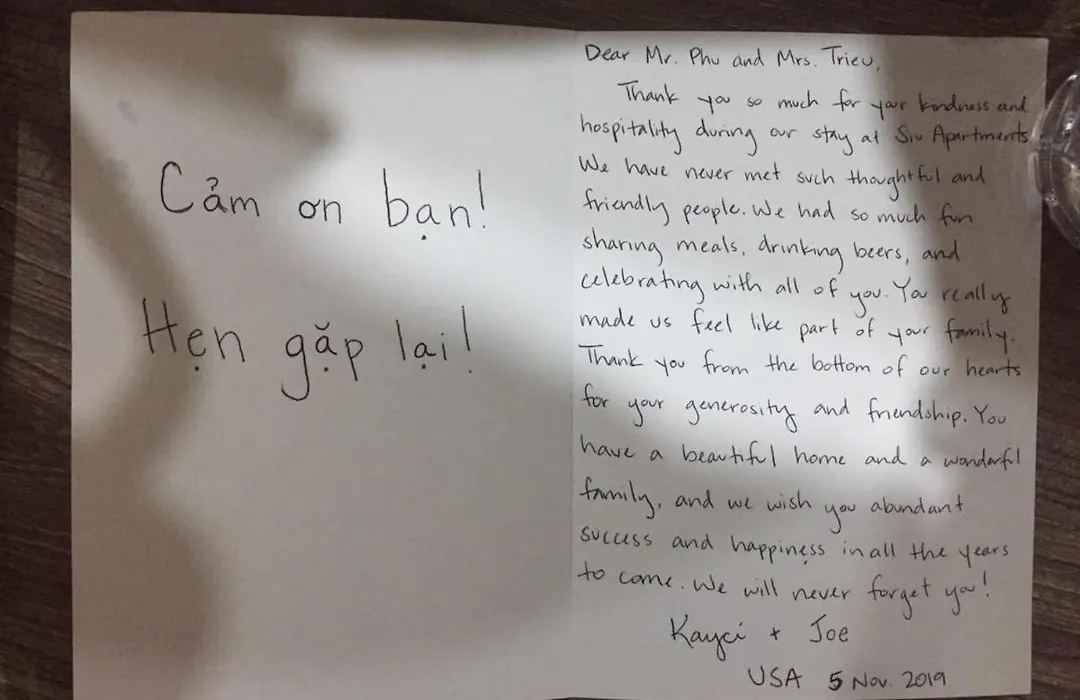 Cảm ơn bạn!
Hẹn gặp lại!
Dear Mr. Phu and Mrs. Trieu,
Thank you so much for your kindness and
hospitality during our stay at Siv Apartments.
We have never met such thoughtful and
friendly people. We had so much fun
sharing meals, drinking beers, and
celebrating with all of you. You really
made us feel like part of your family.
Thank you from the bottom of our hearts
for your generosity and friendship. You
have a beautiful home and a wonderful
family, and we wish you abundant
success and happiness in all the years
to come. We will never forget you!
Kayci + Joe
USA 5 Nov. 2019